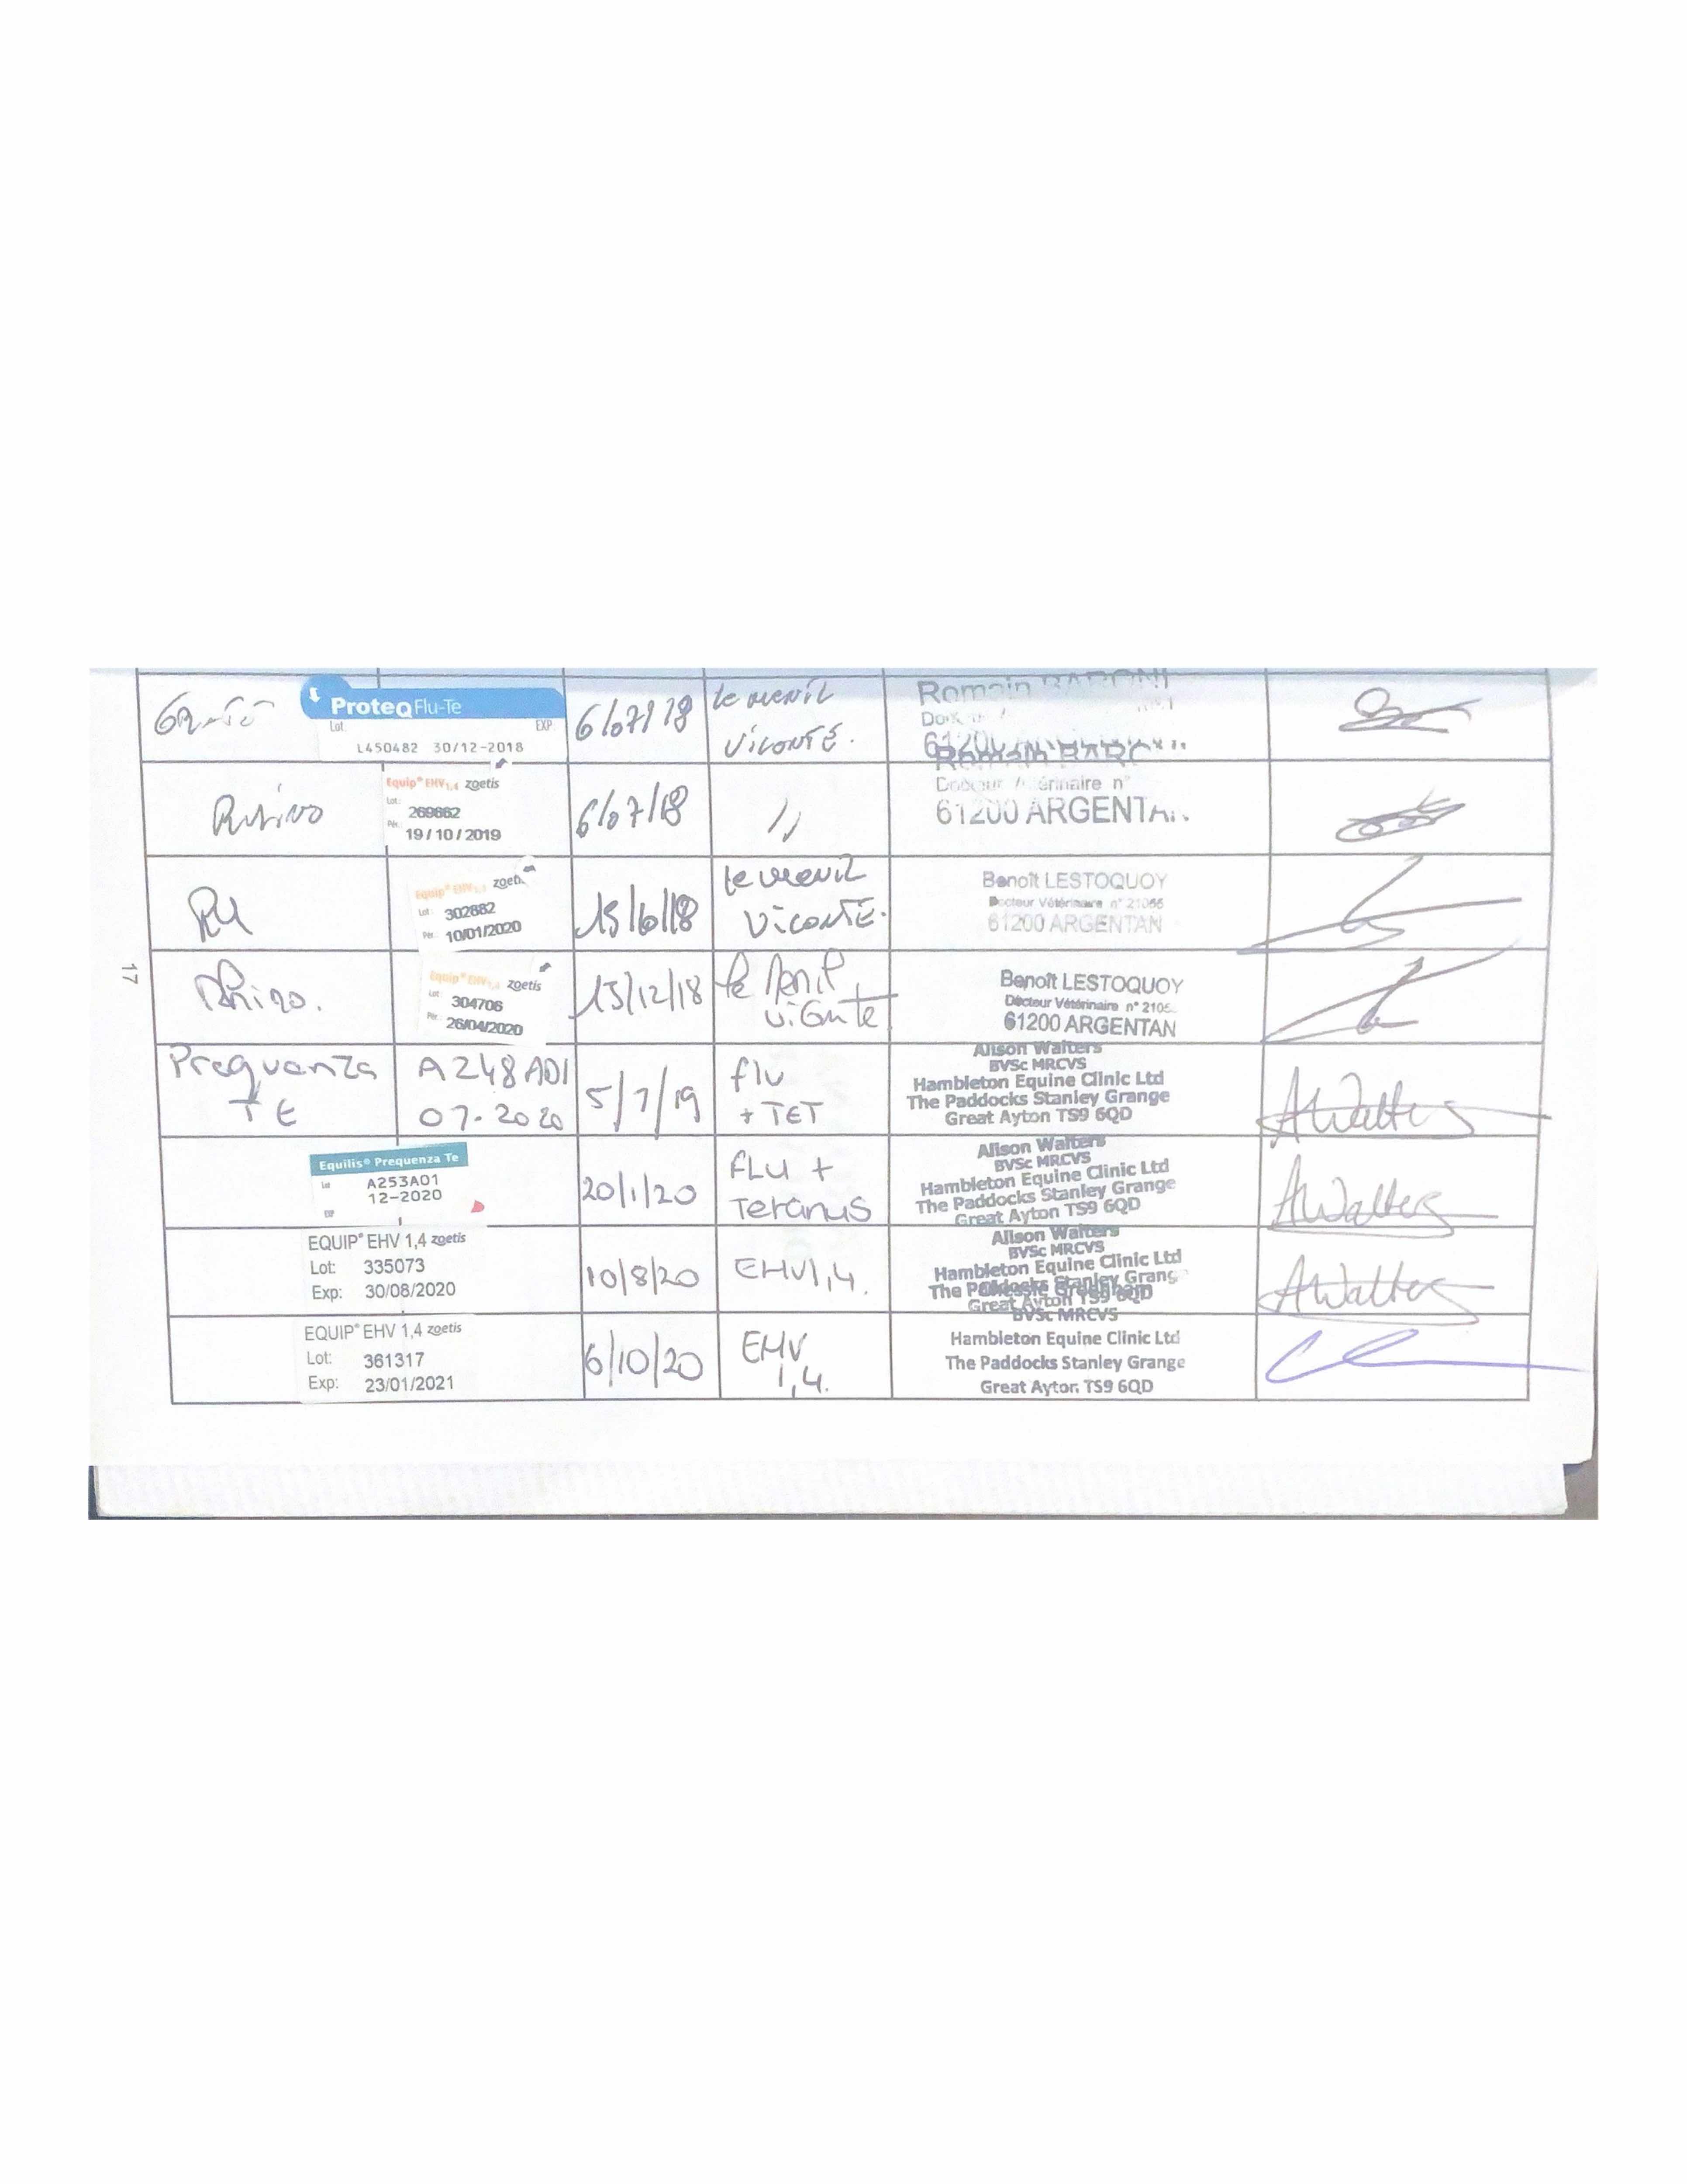 ProteqFlu-Te
Lot EXP
L450482 30/12-2018
6/07/18
le menil
Vicomté.
Romain BARONI
61200
Rhino
Equip® EHV1,4 zoetis
Lot: 269862
Pér. 19/10/2019
6/07/18
//
Romain
Docteur Vétérinaire n°
61200 ARGENTAN
RH
Equip® EHV1,4 zoetis
Lot: 302882
Pér. 10/01/2020
15/6/18
le menil
Vicomté.
Benoît LESTOQUOY
Docteur Vétérinaire n° 21066
61200 ARGENTAN
17
Rhino.
Equip® EHV1,4 zoetis
Lot: 304706
Pér. 26/04/2020
13/12/18
le Menil
Vicomte
Benoît LESTOQUOY
Docteur Vétérinaire n° 2106
61200 ARGENTAN
Prequenza
TE
A248A01
07.2020
5/7/19
flu
+ TET
Alison Walters
BVSc MRCVS
Hambleton Equine Clinic Ltd
The Paddocks Stanley Grange
Great Ayton TS9 6QD
AWalters
Equilis® Prequenza Te
Lot A253A01
12-2020
EXP
20/1/20
FLU +
Tetanus
Alison Walters
BVSc MRCVS
Hambleton Equine Clinic Ltd
The Paddocks Stanley Grange
Great Ayton TS9 6QD
AWalters
EQUIP® EHV 1,4 zoetis
Lot: 335073
Exp: 30/08/2020
10/8/20
EHV1,4.
Alison Walters
BVSc MRCVS
Hambleton Equine Clinic Ltd
The Paddocks Stanley Grange
Great Ayton TS9 6QD
AWalters
EQUIP® EHV 1,4 zoetis
Lot: 361317
Exp: 23/01/2021
6/10/20
EHV
1,4.
BVSc MRCVS
Hambleton Equine Clinic Ltd
The Paddocks Stanley Grange
Great Ayton TS9 6QD